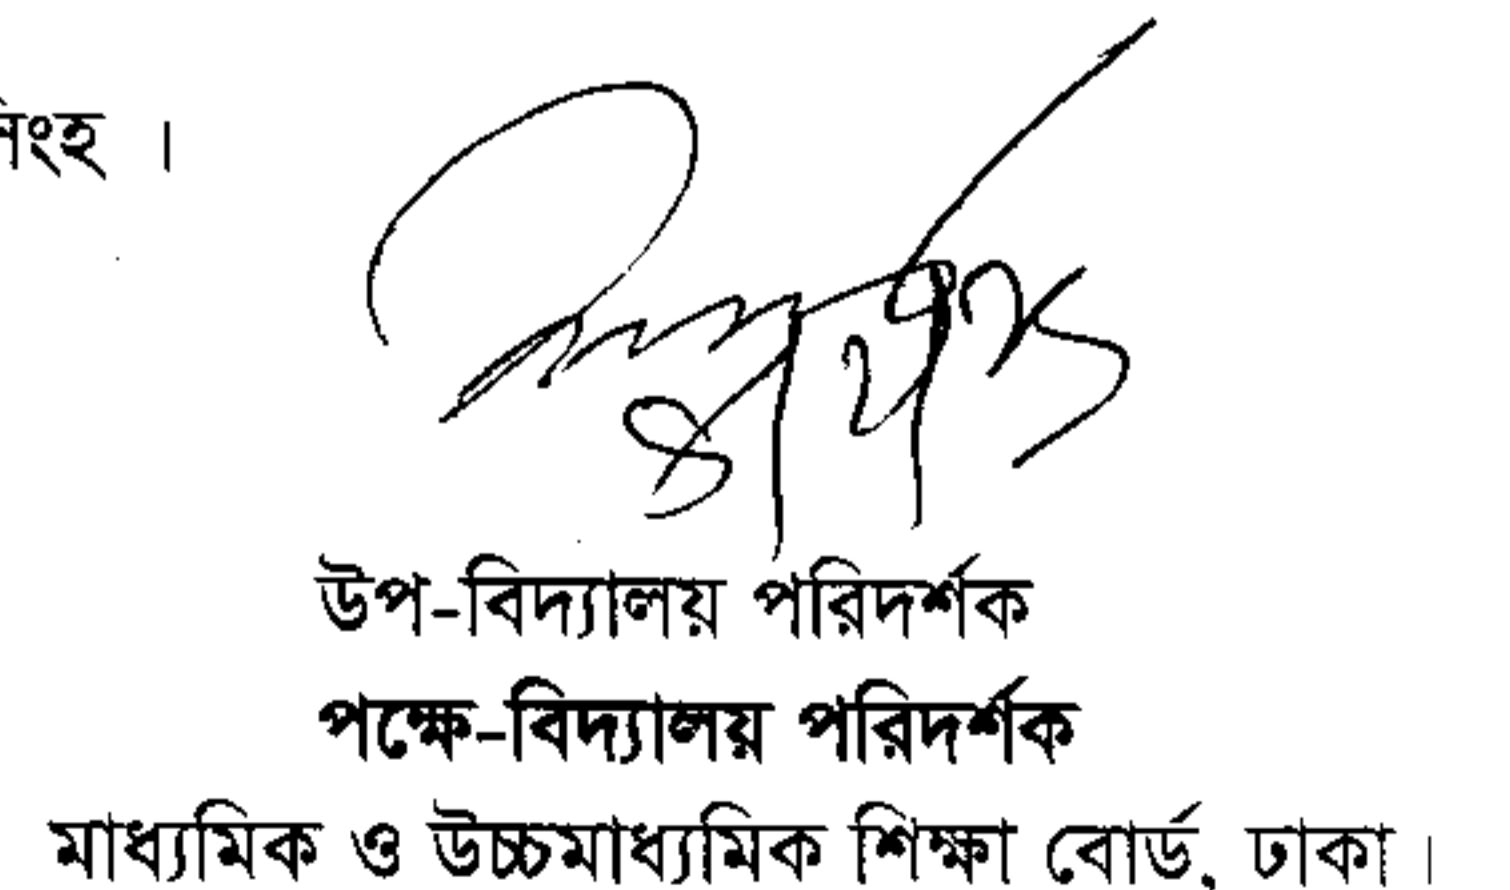 িংহ ।
উপ-বিদ্যালয় পরিদর্শক
পক্ষে-বিদ্যালয় পরিদর্শক
মাধ্যমিক ও উচ্চমাধ্যমিক শিক্ষা বোর্ড, ঢাকা।